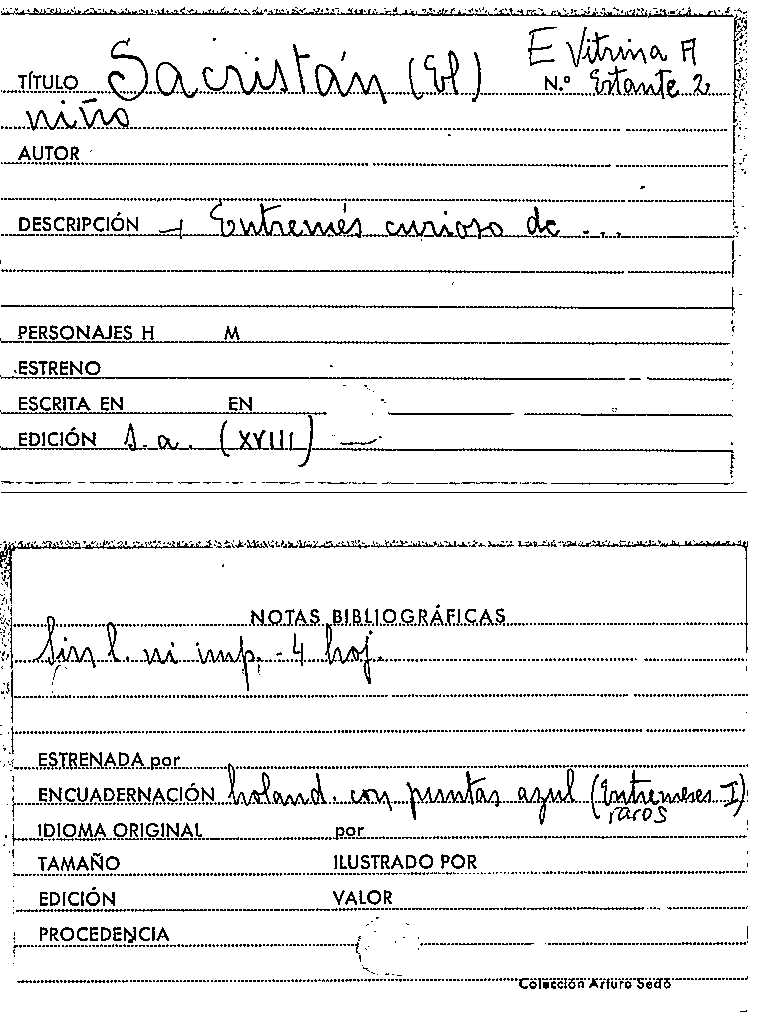 TÍTULO Sacristán (El) E Vitrina A
N.º Estante 2
niño
AUTOR
DESCRIPCIÓN → Entremés curioso de ...
PERSONAJES H M
ESTRENO
ESCRITA EN EN
EDICIÓN s.a. (XVIII)
NOTAS BIBLIOGRÁFICAS
Sin l. ni imp. - 4 hoj.
ESTRENADA por
ENCUADERNACIÓN holand. con puntas azul (Entremeses I)
raros
IDIOMA ORIGINAL por
TAMAÑO ILUSTRADO POR
EDICIÓN VALOR
PROCEDENCIA
Colección Arturo Sedó